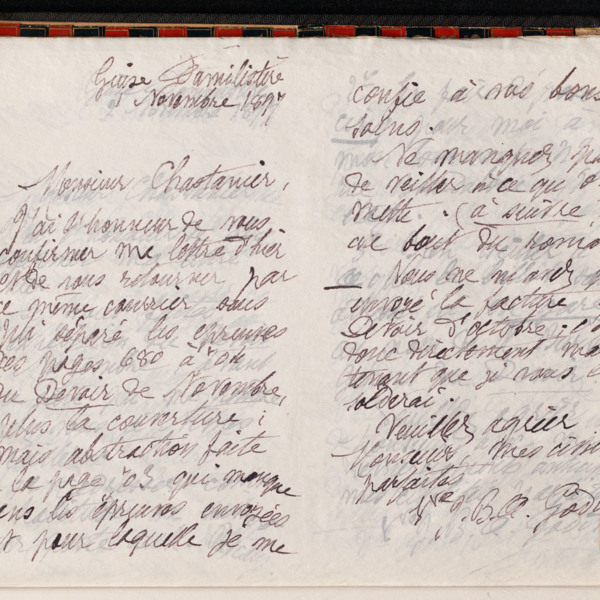 Guise Familistère
Novembre 1897
Monsieur Chastanier,
J'ai l'honneur de vous
confirmer ma lettre d'hier
et de vous retourner par
ce même courrier sous
pli séparé les épreuves
des pages 680 à 704
du Devoir de Novembre,
plus la couverture ;
mais abstraction faite
la page 703 qui manque
les épreuves envoyées
et pour laquelle je me
confie à vos bons
soins.
Ne manquez pas
de veiller à ce qu'o
mette : (à suivre
au bout du roman
Vous ne m'avez
envoyé la facture
Devoir d'octobre ; c'
donc directement
tenant que je vous
solderai.
Veuillez agréer
Monsieur, mes civi
parfaites
Vve J. B. A. Godi